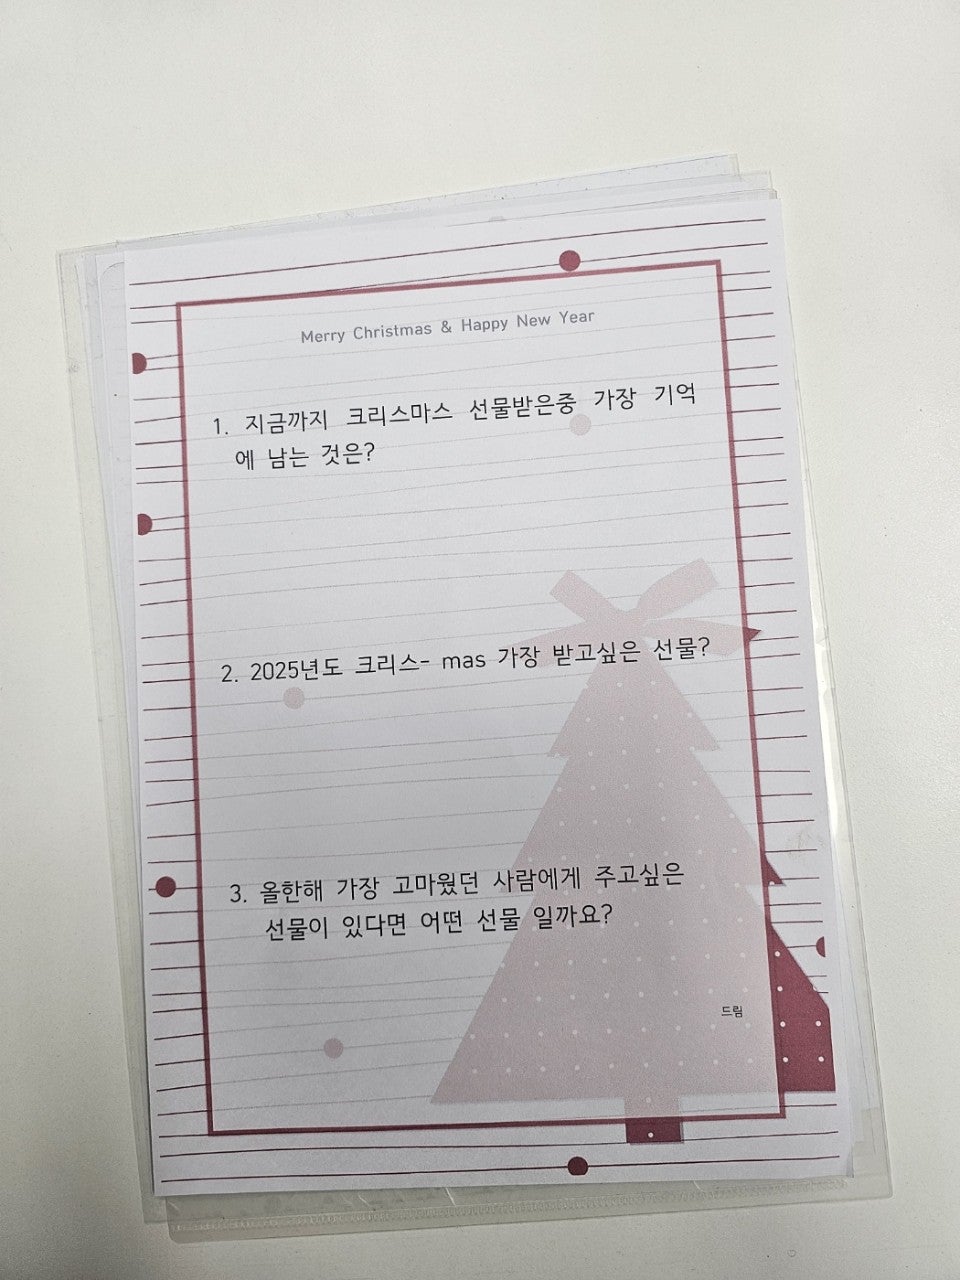 Merry Christmas & Happy New Year
1. 지금까지 크리스마스 선물받은중 가장 기억
에 남는 것은?
2. 2025년도 크리스- mas 가장 받고싶은 선물?
3. 올한해 가장 고마웠던 사람에게 주고싶은
선물이 있다면 어떤 선물 일까요?
드림